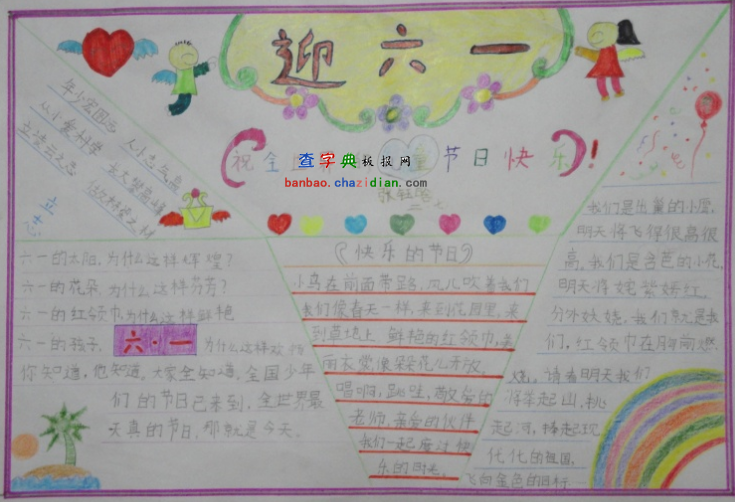 迎六一
祝全国 童节日快乐!
查字典板报网
banbao.chazidian.com
从小爱科学
立志
六一的太阳,为什么这样辉煌?
六一的花朵,为什么这样芬芳?
六一的红领巾为什么这样鲜艳
六一的孩子,六·一 为什么这样欢
你知道,他知道,大家全知道,全国少年
们的节日已来到,全世界最
天真的节日,那就是今天。
快乐的节日
小鸟在前面带路,风儿吹着我们
我们像春天一样,来到花园里,来
到草地上 鲜艳的红领巾,美
丽衣裳像朵朵花儿开放。
唱啊,跳哇,敬爱的
老师,亲爱的伙伴
我们一起度过快
乐的时光。
我们是出巢的小鹰,
明天将飞得很高很
高。我们是含苞的小花,
明天将姹紫嫣红,
分外妖娆。我们
们,红领巾在胸前燃
烧。请看明天我们
将举起山,挑
起河,捧起现
代化的祖国,
飞向金色的